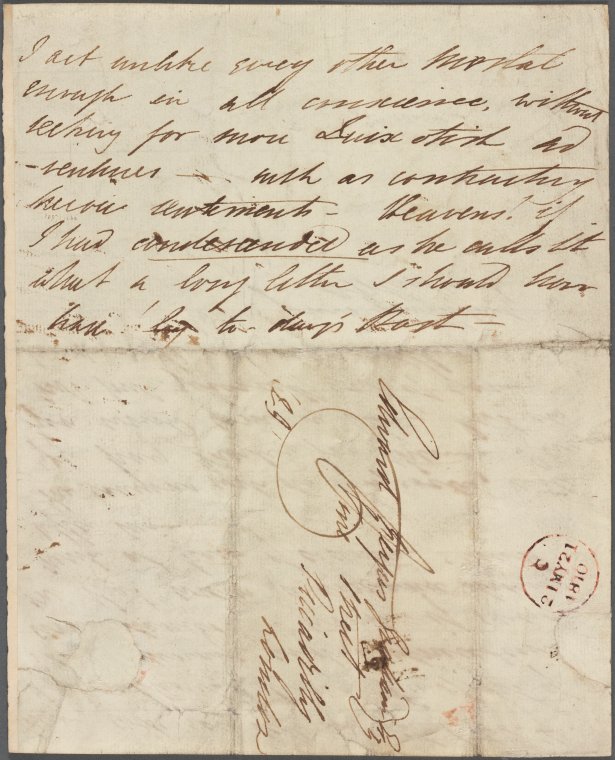 I act unlike every other Mortal
enough in all conscience, without
seeking for more Quixotish ad
-ventures — such as contracting
sentiments — Heavens! if
I had condescended as he calls it
what a long letter I should have
had by to-day's Post —
Edward Fergus Graham Esqr
Vine Street
Piccadilly
London
C
21 MY 21
1810